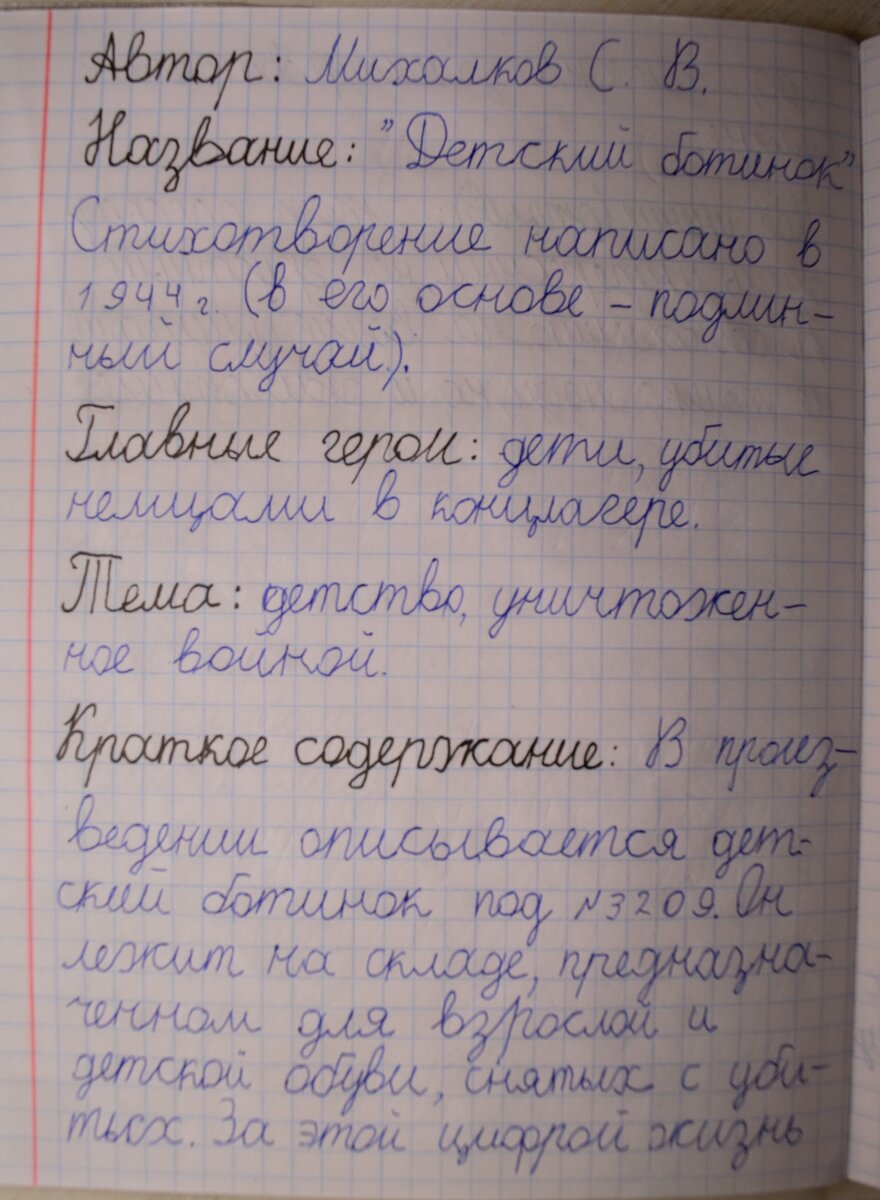 Автор: Михалков С. В.
Название: "Детский ботинок"
Стихотворение написано в
1944 г. (в его основе – подлин-
ный случай).
Главные герои: дети, убитые
немцами в концлагере.
Тема: детство, уничтожен-
ное войной.
Краткое содержание: В произ-
ведении описывается дет-
ский ботинок под №3209. Он
лежит на складе, предназна-
ченном для взрослой и
детской обуви, снятых с уби-
тых. За этой цифрой жизнь